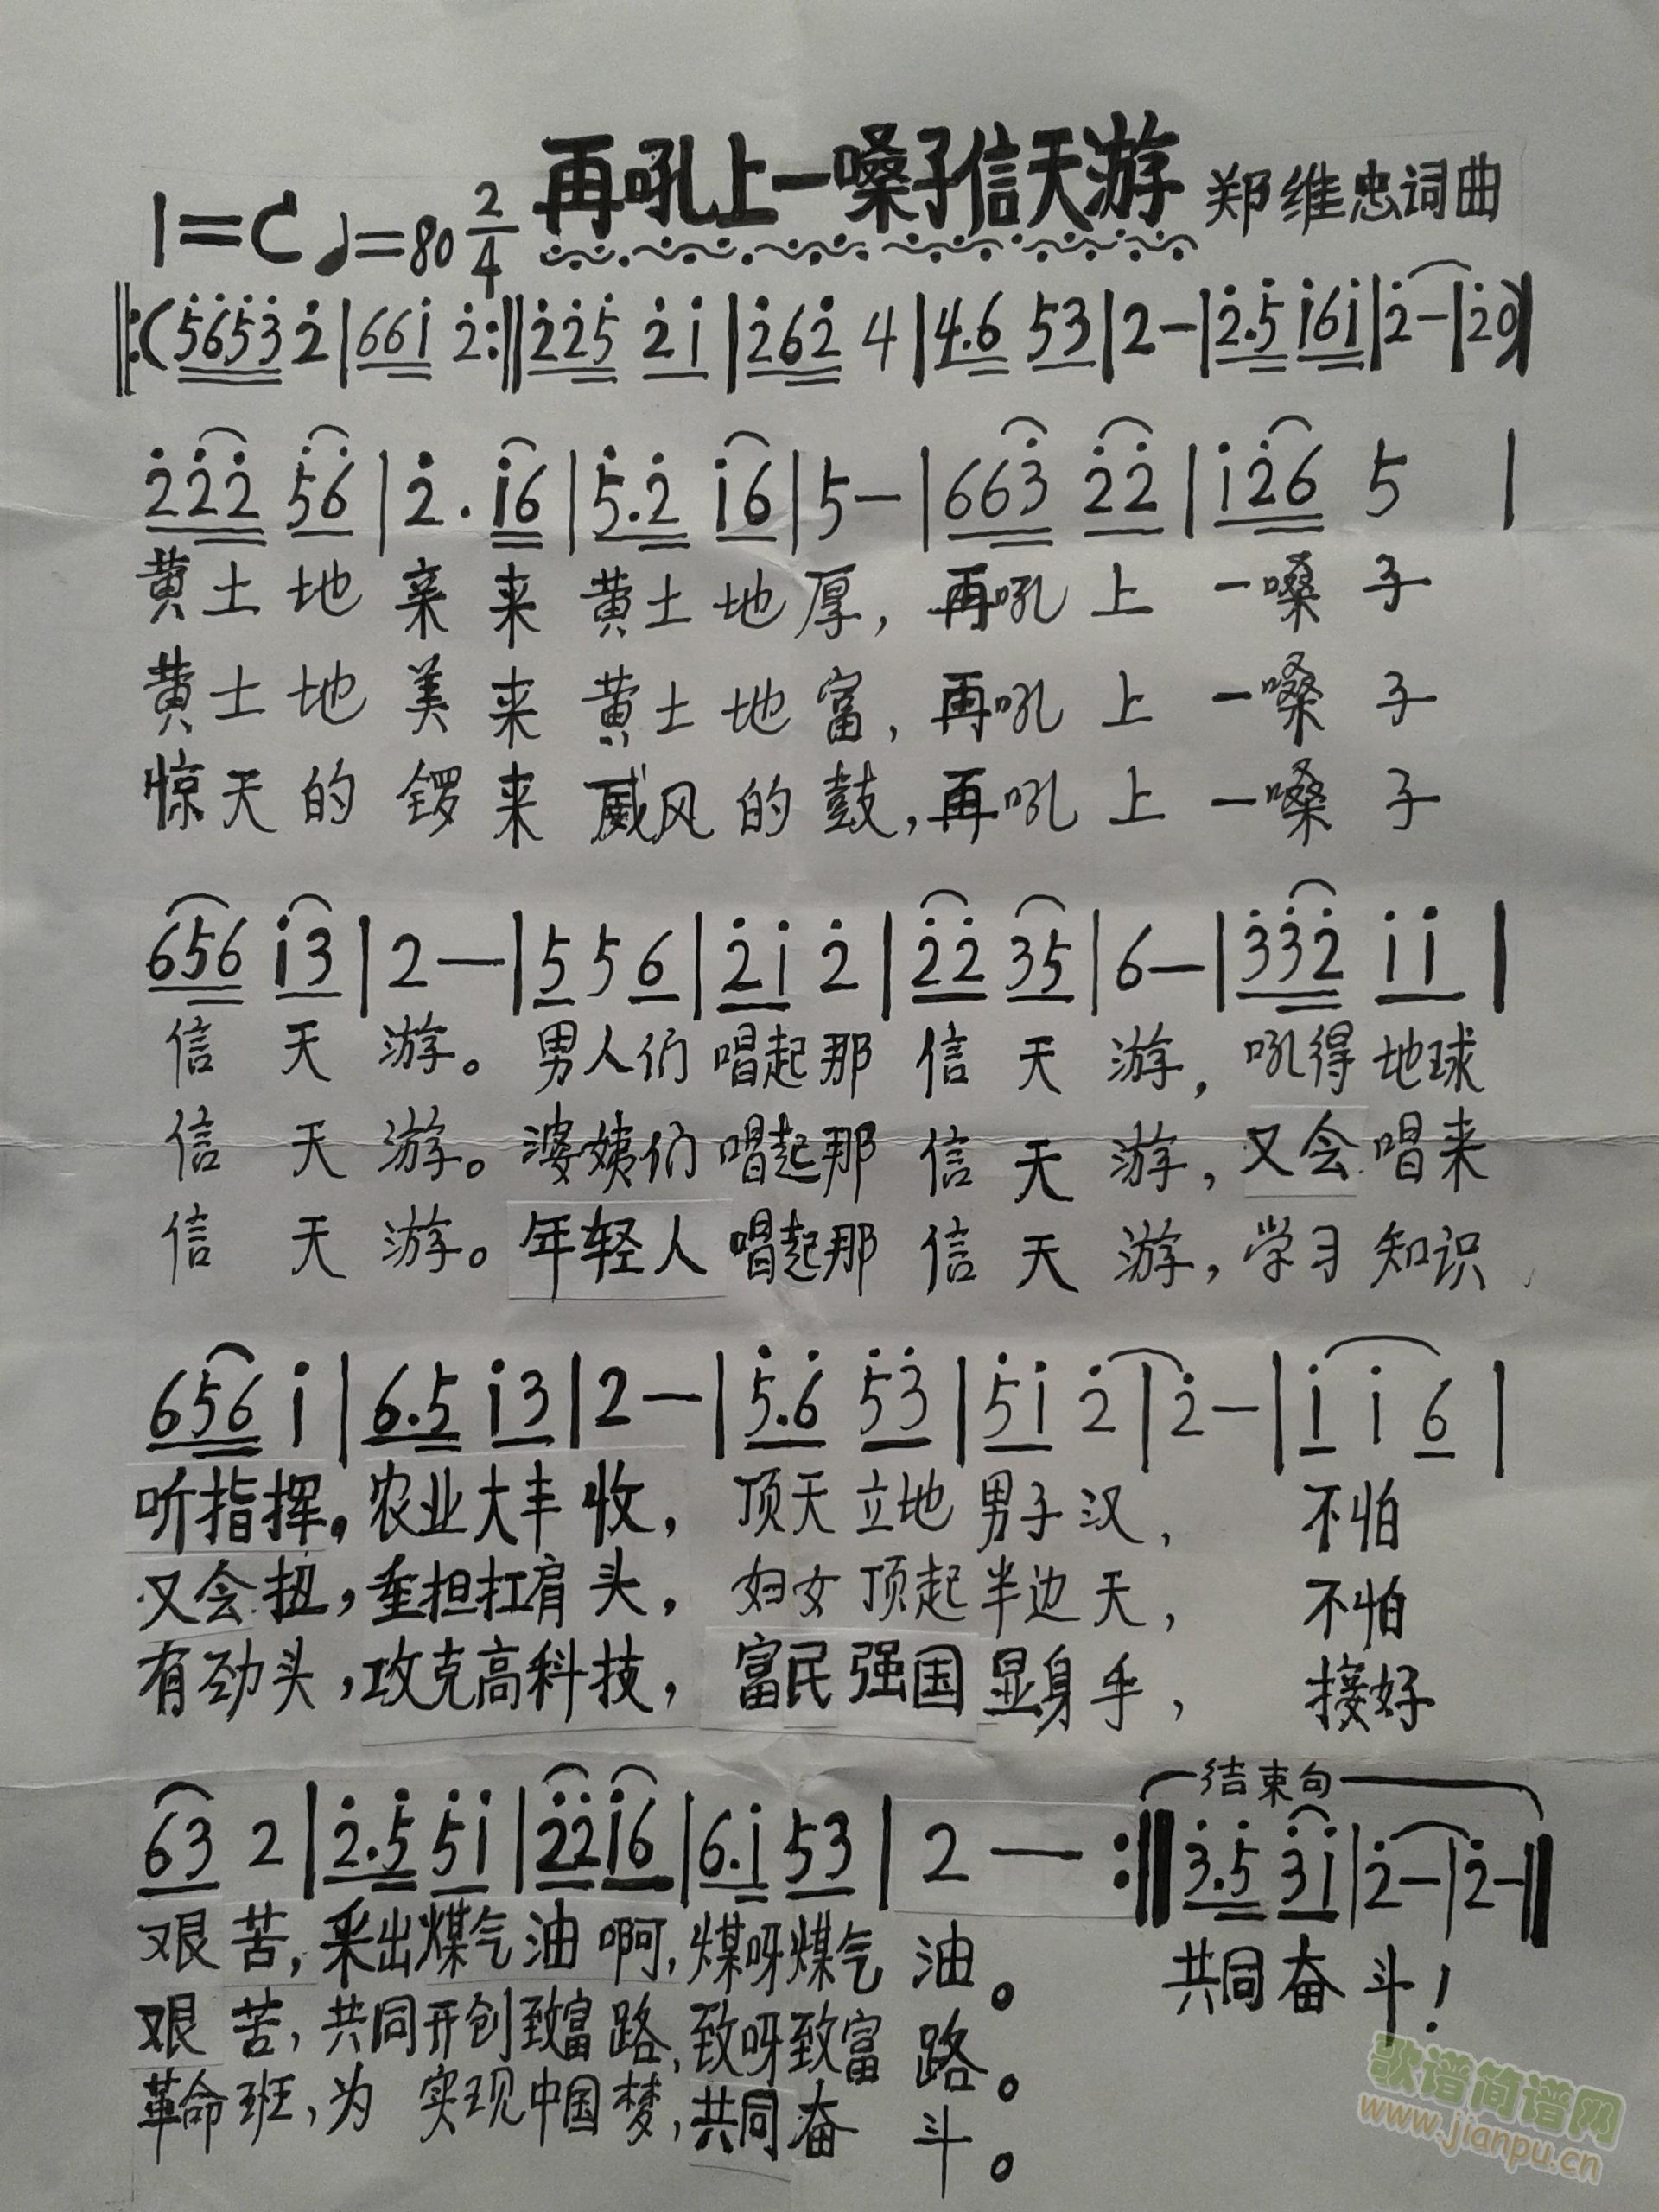 再吼上一嗓子信天游 郑维忠词曲
1=C ♩=80 2/4
‖:(5̇6̇5̇3̇ 2̇|661̇ 2̇:‖2̇2̇5̇ 2̇1̇|2̇62̇ 4|4.6 53|2-|2̇.5̇ 1̇61̇|2̇-|2̇0)|
2̇2̇2̇ 5̇6̇|2̇.1̇6|5̇.2̇ 1̇6|5-|663̇ 2̇2̇|1̇2̇6 5|
黄土地亲来黄土地厚,再吼上一嗓子
黄土地美来黄土地富,再吼上一嗓子
惊天的锣来威风的鼓,再吼上一嗓子
656 1̇3|2-|556|2̇1̇ 2̇|2̇2̇ 35|6-|3̇3̇2̇ 1̇1̇|
信天游。男人们唱起那信天游,吼得地球
信天游。婆姨们唱起那信天游,又会唱来
信天游。年轻人唱起那信天游,学习知识
656 1̇|6.5 1̇3|2-|5̇.6̇ 5̇3̇|5̇1̇ 2̇|2̇-|1̇ 1̇ 6|
听指挥。农业大丰收,顶天立地男子汉,不怕
又会扭,重担扛肩头,妇女顶起半边天,不怕
有劲头,攻克高科技,富民强国显身手,接好
结束句
63 2|2̇.5̇ 5̇1̇|2̇2̇1̇6|6.1̇ 53|2-:‖3̇.5̇ 3̇1̇|2̇-|2̇-‖
艰苦,采出煤气油啊,煤呀煤气油。 共同奋斗!
艰苦,共同开创致富路,致呀致富路。
革命班,为实现中国梦,共同奋斗。
歌谱简谱网
www.jianpu.cn